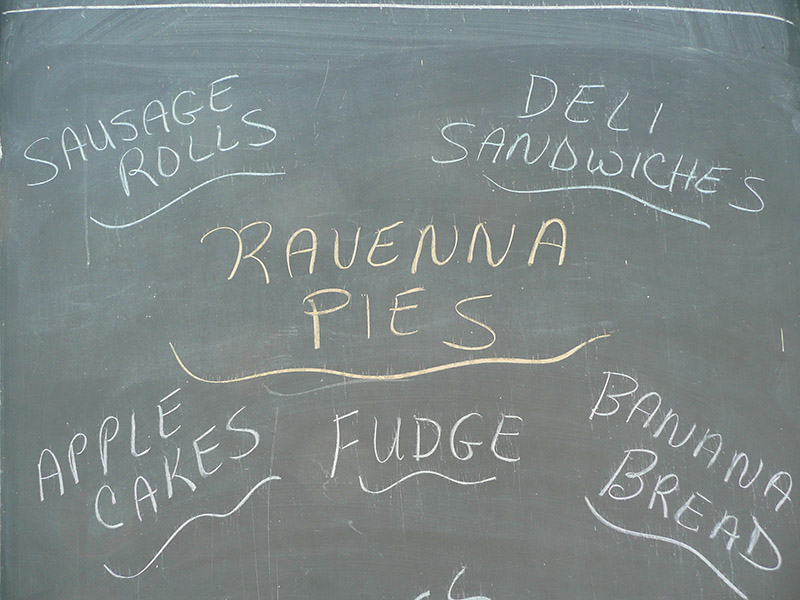 SAUSAGE
ROLLS
DELI
SANDWICHES
RAVENNA
PIES
APPLE
CAKES
FUDGE
BANANA
BREAD